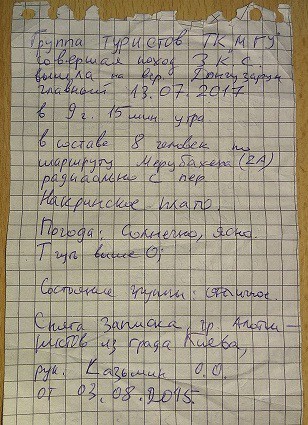 Группа туристов ТК "МГУ"
совершая поход 3 к.с.
вышла на вер. Донгузорун
главный 13.07.2017
в 9 ч. 15 мин. утра
в составе 8 человек по
маршруту Мерубахета (2А)
радиально с пер.
Накринское плато.
Погода: Солнечно, ясно.
Т чуть выше 0;
Состояние группы: отличное.
Снята записка гр. Альпи-
нистов из града Киева,
рук. Казымин О.О.
от 03.08.2015.